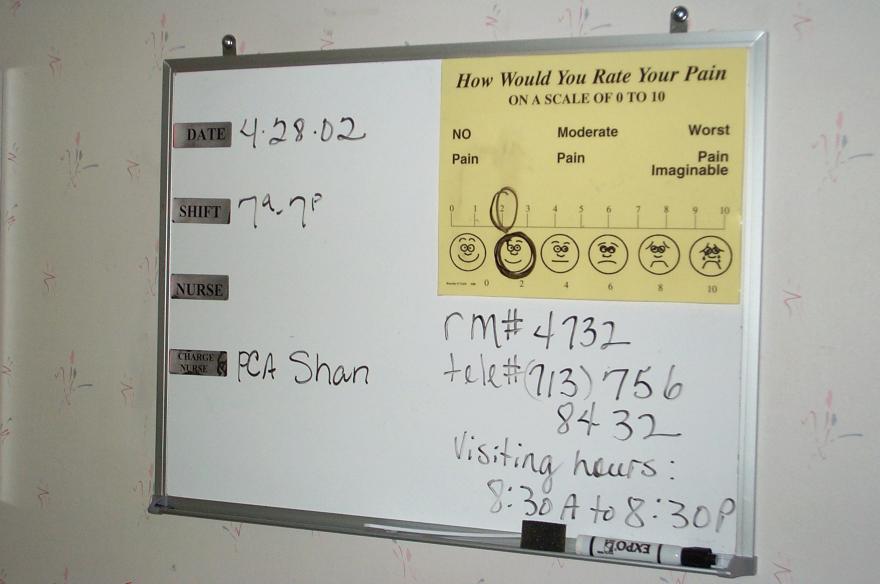 DATE 4·28·02
SHIFT 7a-7P
NURSE
CHARGE NURSE PCA Shan
How Would You Rate Your Pain
ON A SCALE OF 0 TO 10
NO Moderate Worst
Pain Pain Pain
Imaginable
0 1 2 3 4 5 6 7 8 9 10
0 2 4 6 8 10
rm# 4732
tele# (713) 756
8432
Visiting hours:
8:30A to 8:30P
EXPO